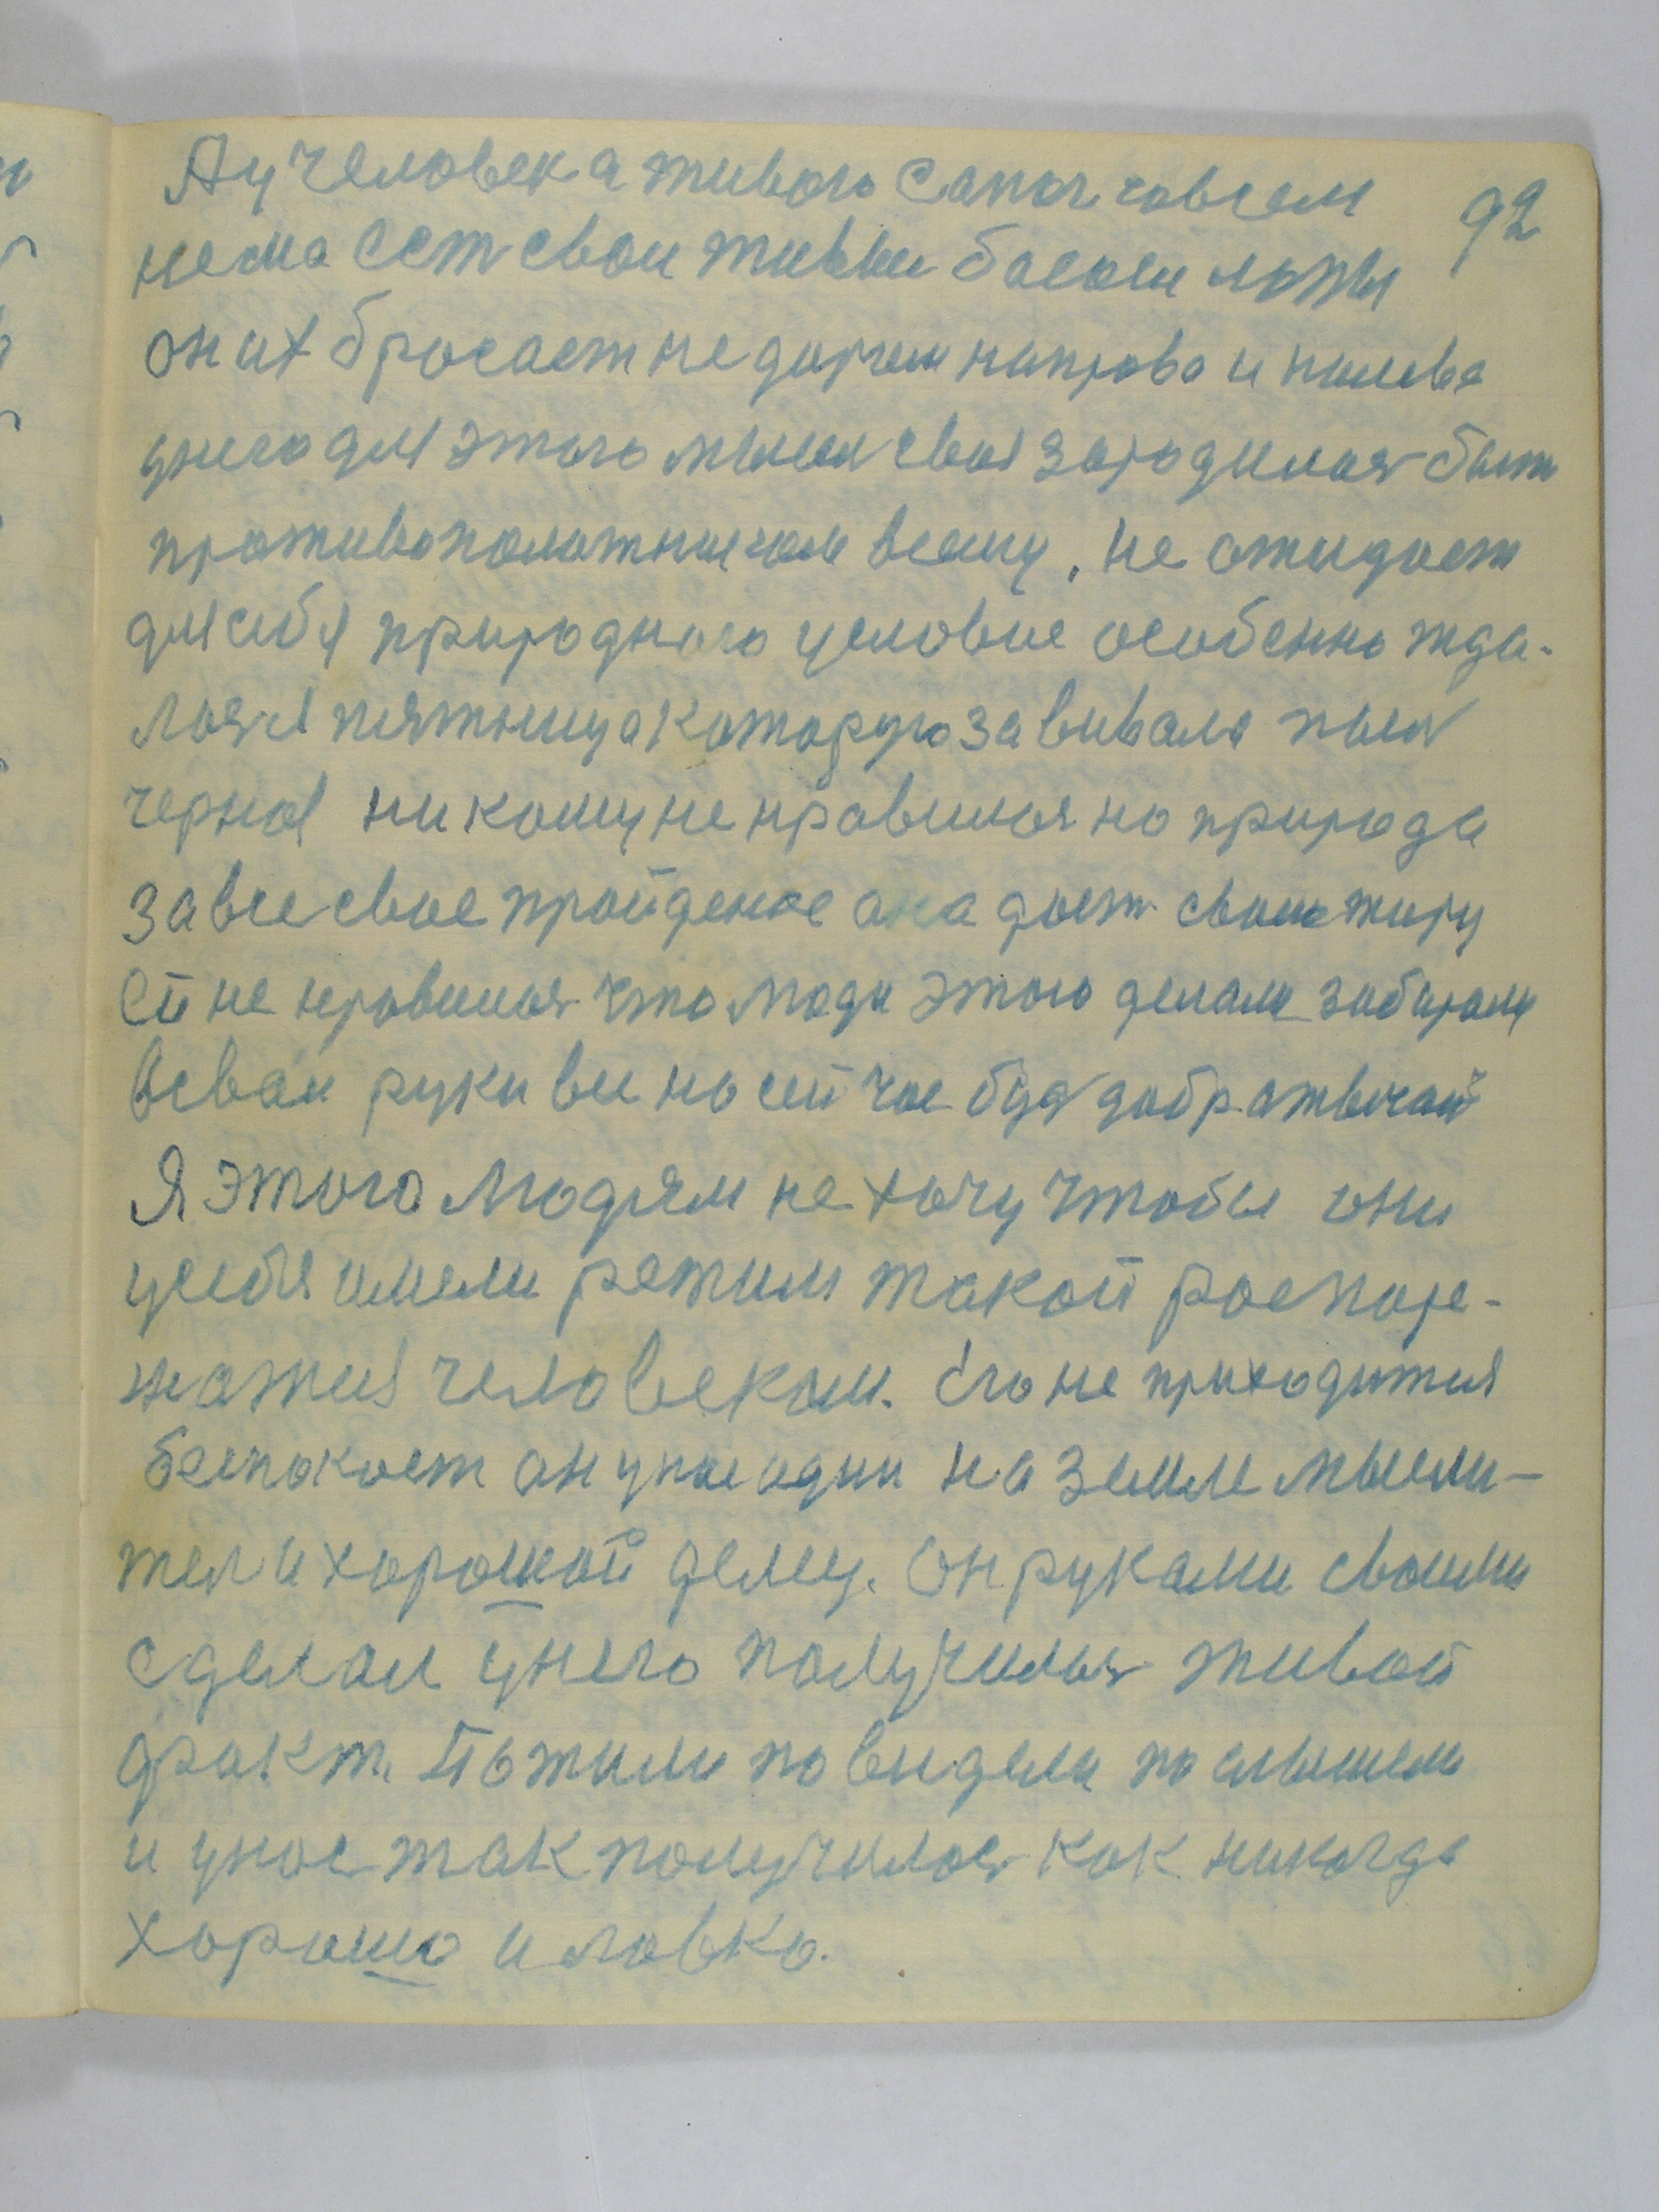 А у человека живого сапог совсем 92
нема Есть свои живыи босыи лапы
он их бросает недаром направо и налево
у него для этого мысля своя зародилася быть
противоположничком всему, не ожидает
для себя природного условие особенно жда-
лося пятница которую завивала пыля
черная никому не нравилася но природа
за все свое пройденое она дает своим жиру
Ей не нравилося что люди этого делали забирали
в свои руки все но сейчас будь добр отвечай
Я этого людям не хочу чтобы они
у себя имели режим такой распоре-
жатися человеком. Его не приходится
беспокоет он у нас один на земле мысли-
тель и хорошой делец. Он руками своими
сделал у него получился живой
факт. Пожили повидели послышели
и у нас так получилося как никогда
хорошо и ловко.